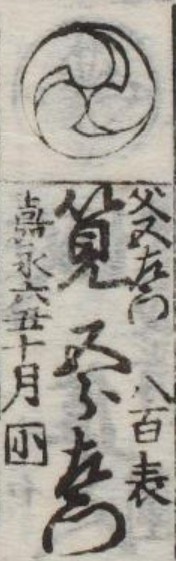 父又左衛門 八百表
筧又左衛門
嘉永六丑十月 小